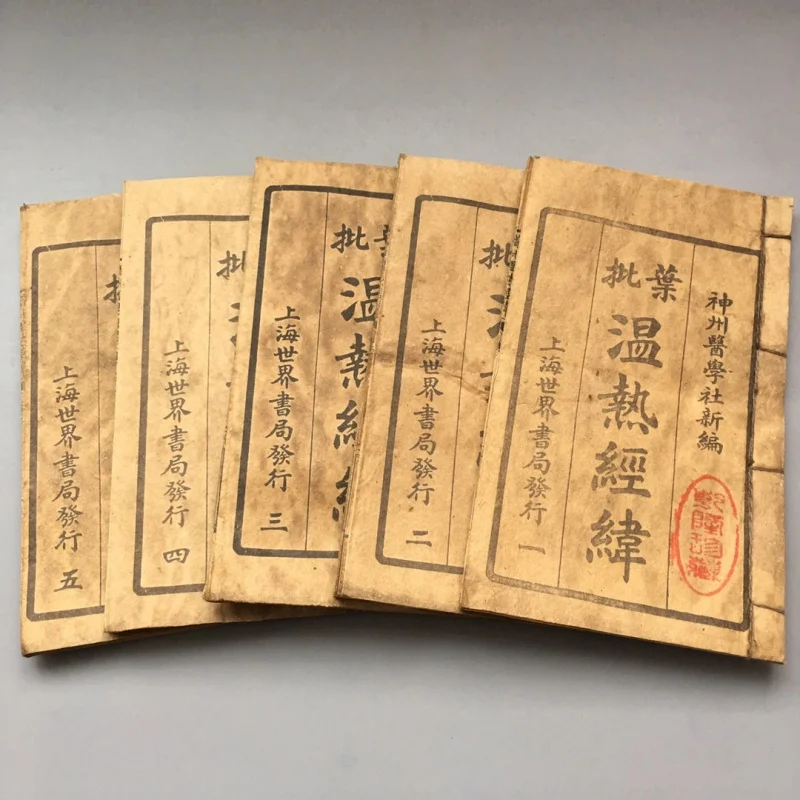 神州醫學社新編
葉批
温熱經緯
上海世界書局發行 一
批
上海世界書局發行 二
葉批
温熱經
上海世界書局發行 三
批
上海世界書局發行 四
上海世界書局發行 五